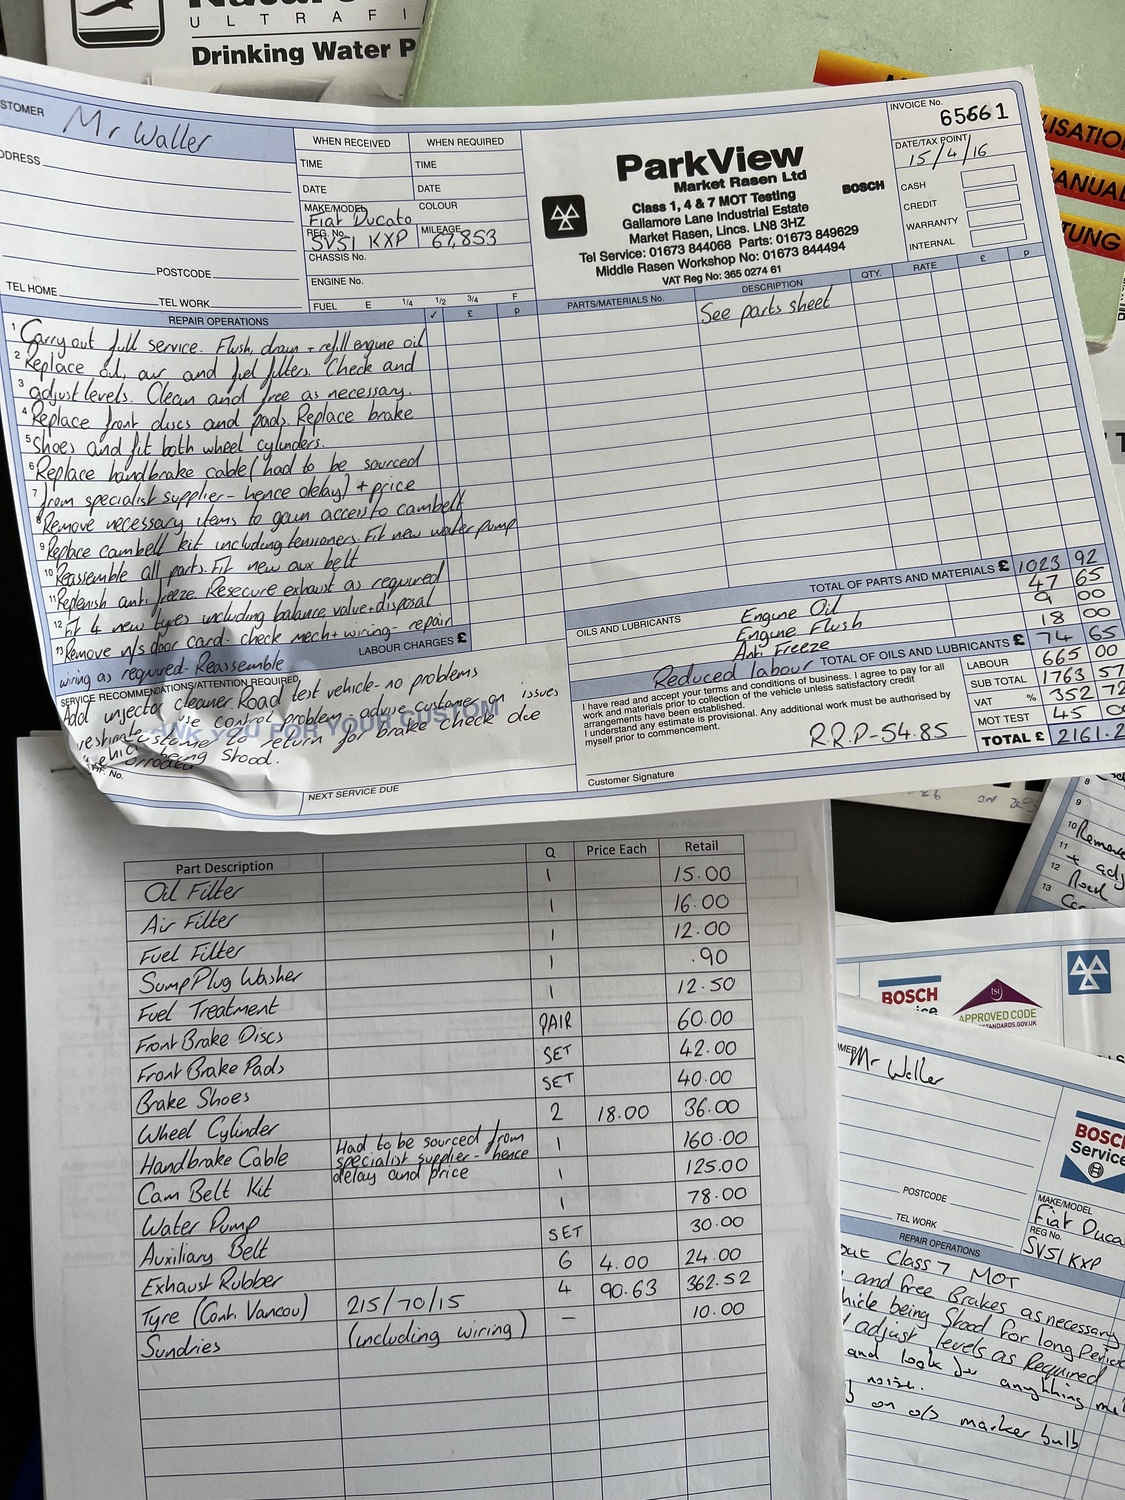 ULTRAFI
Drinking Water P
CUSTOMER Mr Waller
ADDRESS
POSTCODE
TEL HOME TEL WORK
WHEN RECEIVED WHEN REQUIRED
TIME TIME
DATE DATE
MAKE/MODEL COLOUR
Fiat Ducato
REG. No. MILEAGE
SV51 KXP 67,853
CHASSIS No.
ENGINE No.
FUEL E 1/4 1/2 3/4 F
ParkView
Market Rasen Ltd
Class 1, 4 & 7 MOT Testing
BOSCH
Gallamore Lane Industrial Estate
Market Rasen, Lincs. LN8 3HZ
Tel Service: 01673 844068 Parts: 01673 849629
Middle Rasen Workshop No: 01673 844494
VAT Reg No: 365 0274 61
INVOICE No.
65661
DATE/TAX POINT
15/4/16
CASH
CREDIT
WARRANTY
INTERNAL
REPAIR OPERATIONS ✓ £ p
1 Carry out full service. Flush, drain + refill engine oil
2 Replace oil, air and fuel filters. Check and
3 adjust levels. Clean and free as necessary.
4 Replace front discs and pads. Replace brake
5 shoes and fit both wheel cylinders.
6 Replace handbrake cable (had to be sourced
7 from specialist supplier - hence delay) + price
8 Remove necessary items to gain access to cambelt
9 Replace cambelt kit including tensioners. Fit new water pump
10 Reassemble all parts. Fit new aux belt
11 Replenish anti freeze. Resecure exhaust as required
12 Fit 4 new tyres including balance, valve + disposal
13 Remove n/s door card - check mech + wiring - repair
LABOUR CHARGES £
wiring as required. Reassemble
SERVICE RECOMMENDATIONS/ATTENTION REQUIRED
Add injector cleaner. Road test vehicle - no problems
THANK YOU FOR YOUR CUSTOM
use control problem - advise customer on issues
customer to return for brake check due
corroded being stood.
NEXT SERVICE DUE
PARTS/MATERIALS No. DESCRIPTION QTY. RATE £ p
See parts sheet
TOTAL OF PARTS AND MATERIALS £ 1023 92
OILS AND LUBRICANTS
Engine Oil 47 65
Engine Flush 9 00
Anti Freeze 18 00
TOTAL OF OILS AND LUBRICANTS £ 74 65
Reduced labour
LABOUR 665 00
SUB TOTAL 1763 57
VAT % 352 72
MOT TEST 45 00
TOTAL £ 2161.2
I have read and accept your terms and conditions of business. I agree to pay for all
work and materials prior to collection of the vehicle unless satisfactory credit
arrangements have been established.
I understand any estimate is provisional. Any additional work must be authorised by
myself prior to commencement.
R.R.P - 54.85
Customer Signature
Part Description Q Price Each Retail
Oil Filter 1 15.00
Air Filter 1 16.00
Fuel Filter 1 12.00
Sump Plug Washer 1 .90
Fuel Treatment 1 12.50
Front Brake Discs PAIR 60.00
Front Brake Pads SET 42.00
Brake Shoes SET 40.00
Wheel Cylinder 2 18.00 36.00
Handbrake Cable Had to be sourced from specialist supplier - hence delay and price 1 160.00
Cam Belt Kit 1 125.00
Water Pump 1 78.00
Auxiliary Belt SET 30.00
Exhaust Rubber 6 4.00 24.00
Tyre (Conti. Vancou) 215/70/15 4 90.63 362.52
Sundries (including wiring) - 10.00
8
9
10 Remove
11 + adj
12 Road
13
BOSCH
tsi
APPROVED CODE
STANDARDS.GOV.UK
Mr Waller
BOSCH
Service
POSTCODE
TEL WORK
MAKE/MODEL
Fiat Duca
REG No.
SV51 KXP
REPAIR OPERATIONS
out Class 7 MOT
and free Brakes as necessary
hicle being stood for long Period
adjust levels as Required
and look for anything
noise.
on o/s marker bulb